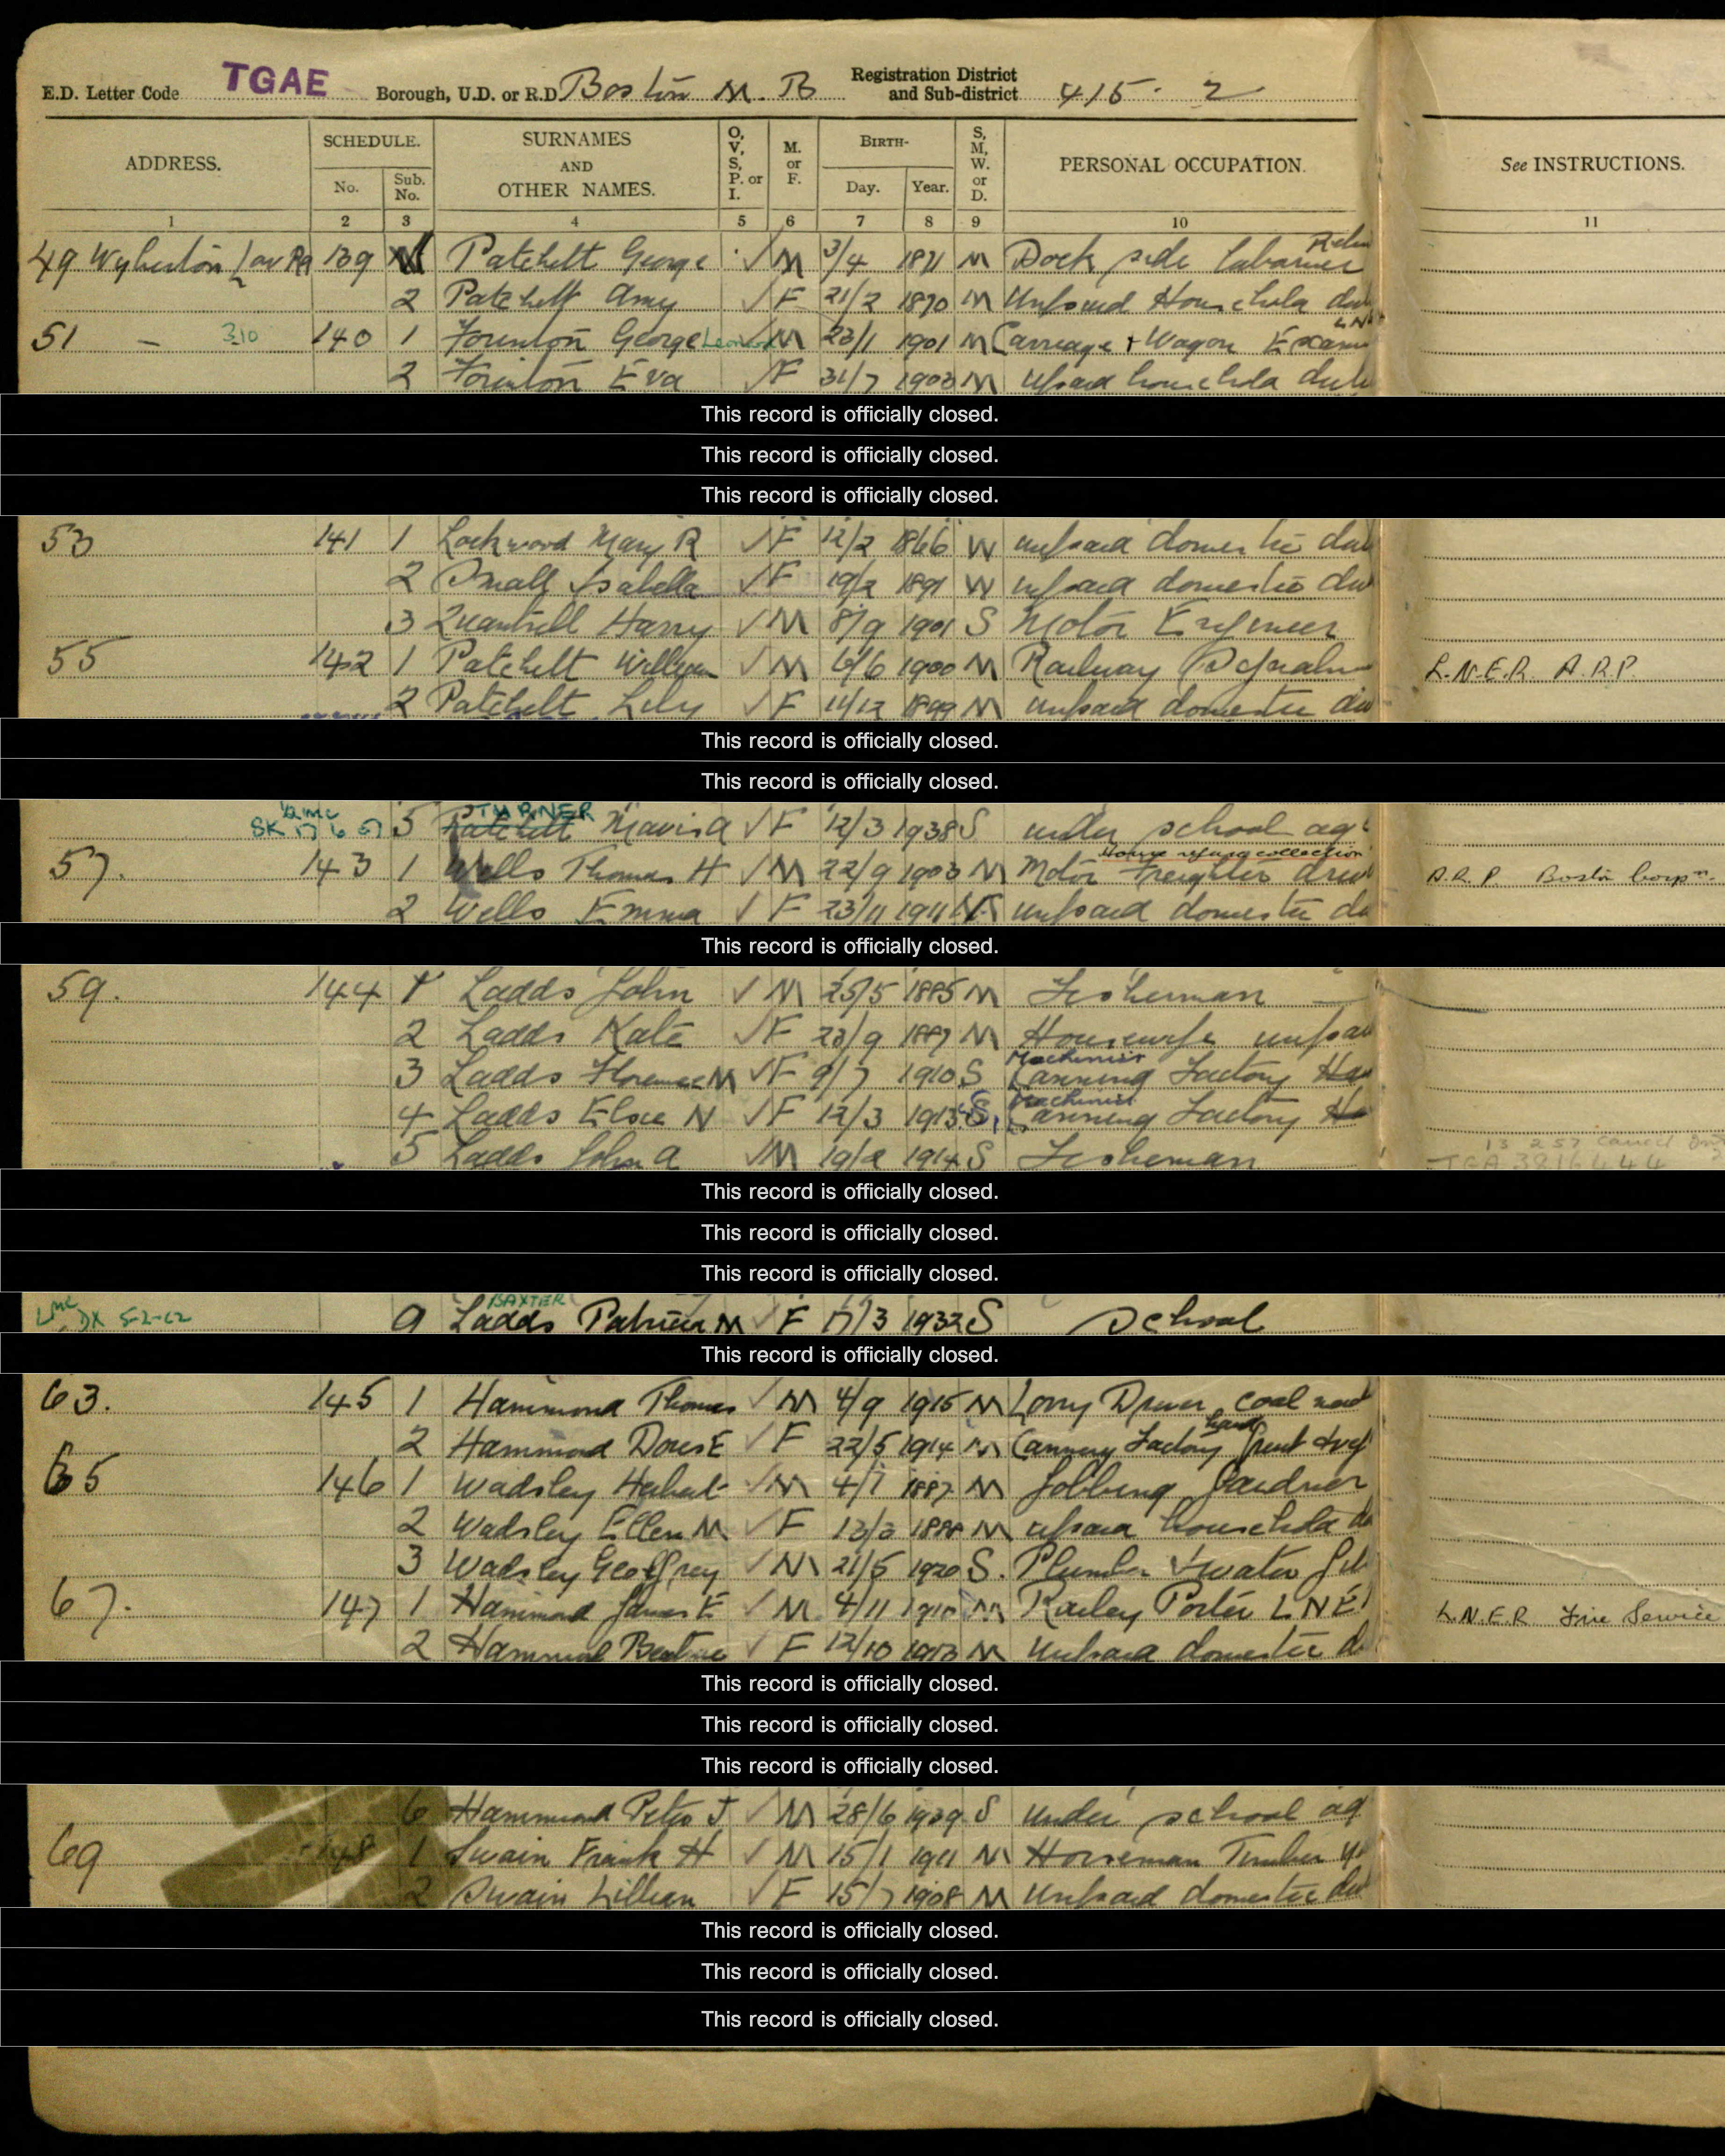 E.D. Letter Code TGAE Borough, U.D. or R.D Boston M. B Registration District and Sub-district 415. 2
ADDRESS. SCHEDULE. No. Sub. No. SURNAMES AND OTHER NAMES. O, V, S, P. or I. M. or F. BIRTH- Day. Year. S, M, W. or D. PERSONAL OCCUPATION. See INSTRUCTIONS.
1 2 3 4 5 6 7 8 9 10 11
49 Wyberton 139 Patchett George M 3/4 1871 M Dock side labourer
2 Patchett Amy F 21/2 1870 M Unpaid Household
51 — 310 140 1 George Leonard M 23/1 1901 M Carriage + Wagon
2 Eva F 31/7 1903 M household
This record is officially closed.
This record is officially closed.
This record is officially closed.
53 141 1 Lockwood Mary R F 12/2 1866 W unpaid domestic
2 Small Isabella F 19/2 1891 W unpaid domestic
3 Quantrill Harry M 8/9 1901 S Motor Engineer
55 142 1 Patchett William M 6/6 1900 M Railway L.N.E.R. A.R.P.
2 Patchett Lily F 11/12 1899 M unpaid domestic
This record is officially closed.
This record is officially closed.
SK 5 Patchett TURNER Mavis A F 12/3 1938 S under school
57. 143 1 Wells Thomas H M 22/9 1903 M Motor Freighter House refuse collection A.R.P. Boston Corpn.
2 Wells Emma F 23/11 1911 unpaid domestic
This record is officially closed.
59. 144 1 Ladds John M 25/5 1885 M Fisherman
2 Ladds Kate F 23/9 1887 M Housewife
3 Ladds Florence M F 9/7 1910 S Machinist Canning Factory
4 Ladds Elsie N F 12/3 1913 S Machinist Canning Factory
5 Ladds John A M 1914 S Fisherman
This record is officially closed.
This record is officially closed.
This record is officially closed.
DX 5-2-62 9 Ladds BAXTER Patricia M F 17/3 1932 S School
This record is officially closed.
63. 145 1 Hammond Thomas M 4/9 1915 M Lorry Driver coal
2 Hammond Doris E F 22/5 1914 M Cannery Factory hand
65 146 1 Wadsley Herbert M 4/7 1887 M Jobbing Gardner
2 Wadsley Ellen M F M household
3 Wadsley Geoffrey M 21/5 1920 S. Plumber + water
67. 147 1 Hammond James E M 4/11 1910 M Porter L N E R L.N.E.R Fire Service
2 Hammond Beatrice F 12/10 1913 M Unpaid domestic
This record is officially closed.
This record is officially closed.
This record is officially closed.
6 Hammond Peter J M 28/6 1939 S under school
69 148 1 Swain Frank H M 15/1 1911 M Horseman Timber
2 Swain Lillian F 15/7 1908 M Unpaid domestic
This record is officially closed.
This record is officially closed.
This record is officially closed.